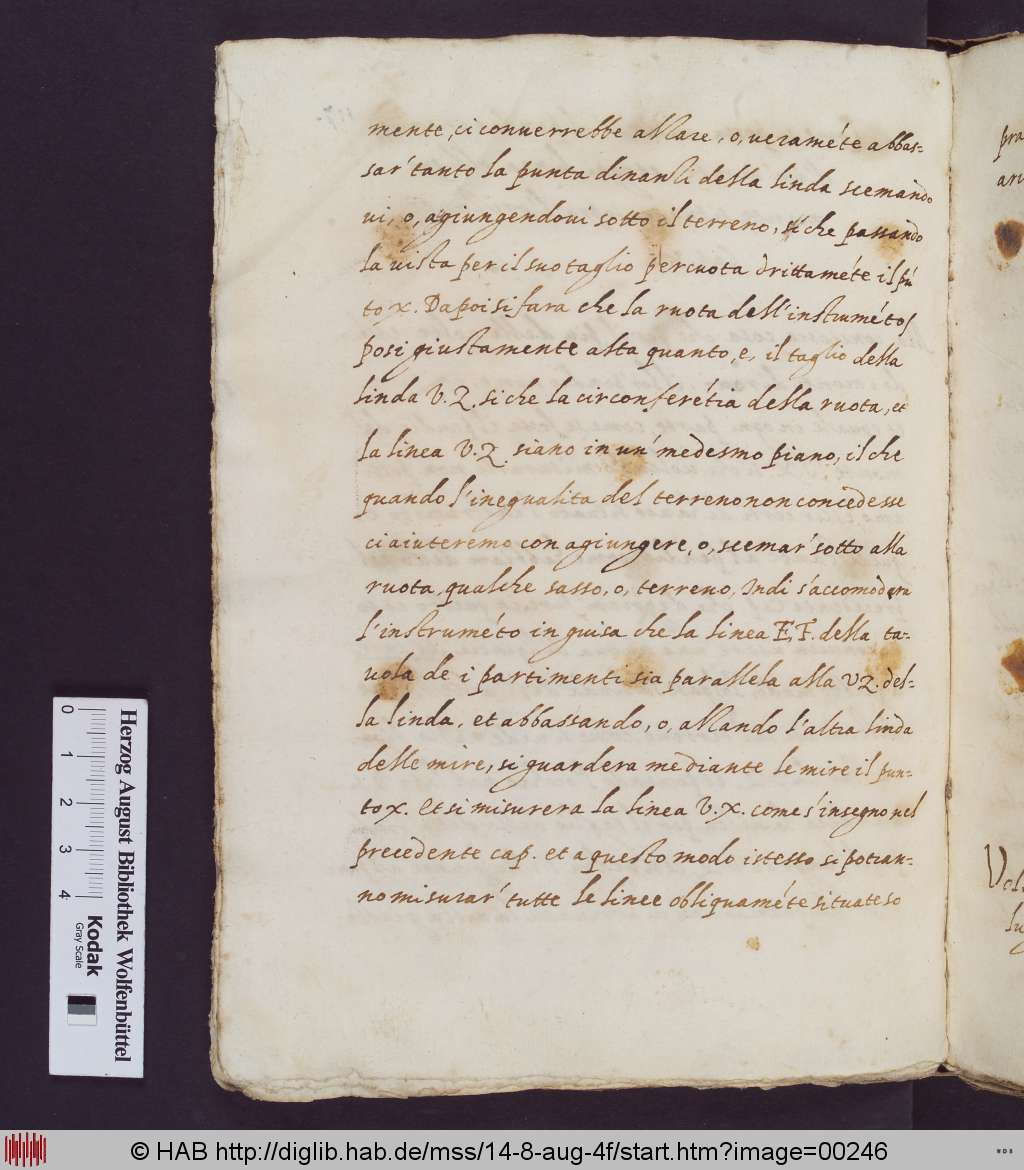 mente, ci conuerrebbe alzare, o, ueraméte abbas=
sar' tanto la punta dinanzi della linda scemando
ui, o, agiungendoui sotto il terreno, si che passando
la uista per il suo taglio percuota drittaméte il pú
to x. Dapoi si fara che la ruota dell'instruméto s
posi giustamente alta quanto, e, il taglio della
linda V.Z. si che la circonferétia della ruota, et
la linea V.Z. siano in un' medesmo piano, il che
quando l'inegualita del terreno non concedesse
ci aiuteremo con agiungere, o, scemar' sotto alla
ruota qualche sasso, o, terreno, Indi s'accomodera
l'instruméto in guisa che la linea E,F. della ta=
uola de i partimenti sia parallela alla VZ. del=
la linda, et abbassando, o, alzando l'altra linda
delle mire, si guardera mediante le mire il pun=
to x. Et si misurera la linea V.X. come s'insegno nel
precedente cap. et a questo modo istesso si potran=
no misurar' tutte le linee obliquaméte situate so
pra
Herzog August Bibliothek Wolfenbüttel
0 1 2 3 4
Kodak
Gray Scale
© HAB http://diglib.hab.de/mss/14-8-aug-4f/start.htm?image=00246